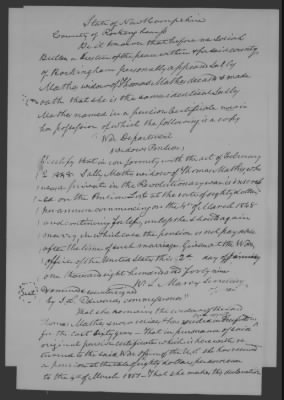 State of New Hampshire
County of Rockingham
Be it known that before me
Butler a Justice of the peace within & for said county
of Rockingham personally appeared Sally
Mathes widow of Thomas Mathes deceased & made
oath that she is the same identical Sally
Mathes named in a pension certificate now in
her possession of which the following is a copy
War Department
Widows Pension
I certify that in conformity with the act of February
2 1848 Sally Mathes widow of Thomas Mathes who
was a private in the Revolutionary war is inscrib
ed on the Pension List at the rate of eighty dollars
per annum commencing on the 4th of March 1848
and continuing for life, unless she should again
marry, in which case the pension is not payable
after the time of such marriage. Given at the War
Office of the United States this 2d day of January
one thousand eight hundred and forty nine
W. L. Marcy Secretary
Examined & countersigned
by J. L. Edwards, commissioner
That she now is the widow of the said
Thomas Mathes & now
for the last sixty years - That in pursuance of said
original pension certificate which is herewith re
turned to the said War Office of the U.S. she received
a pension at the rate of eighty dollars per annum
to the 4th of March 1851 - That she makes this declaration